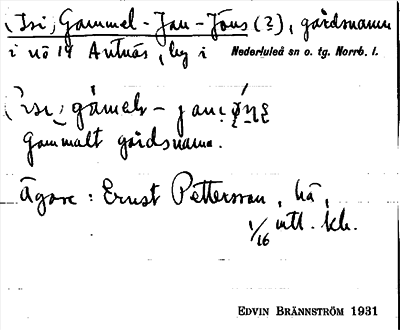 (Isi, Gammel-Jan-Jöns (?), gårdsnamn
i nö 19 Antnäs, by i Nederluleå sn o. tg. Norrb. l.
Gammalt gårdsnamn.
Ägare: Ernst Pettersson, hä,
1/16 mtl. kh.
EDVIN BRÄNNSTRÖM 1931